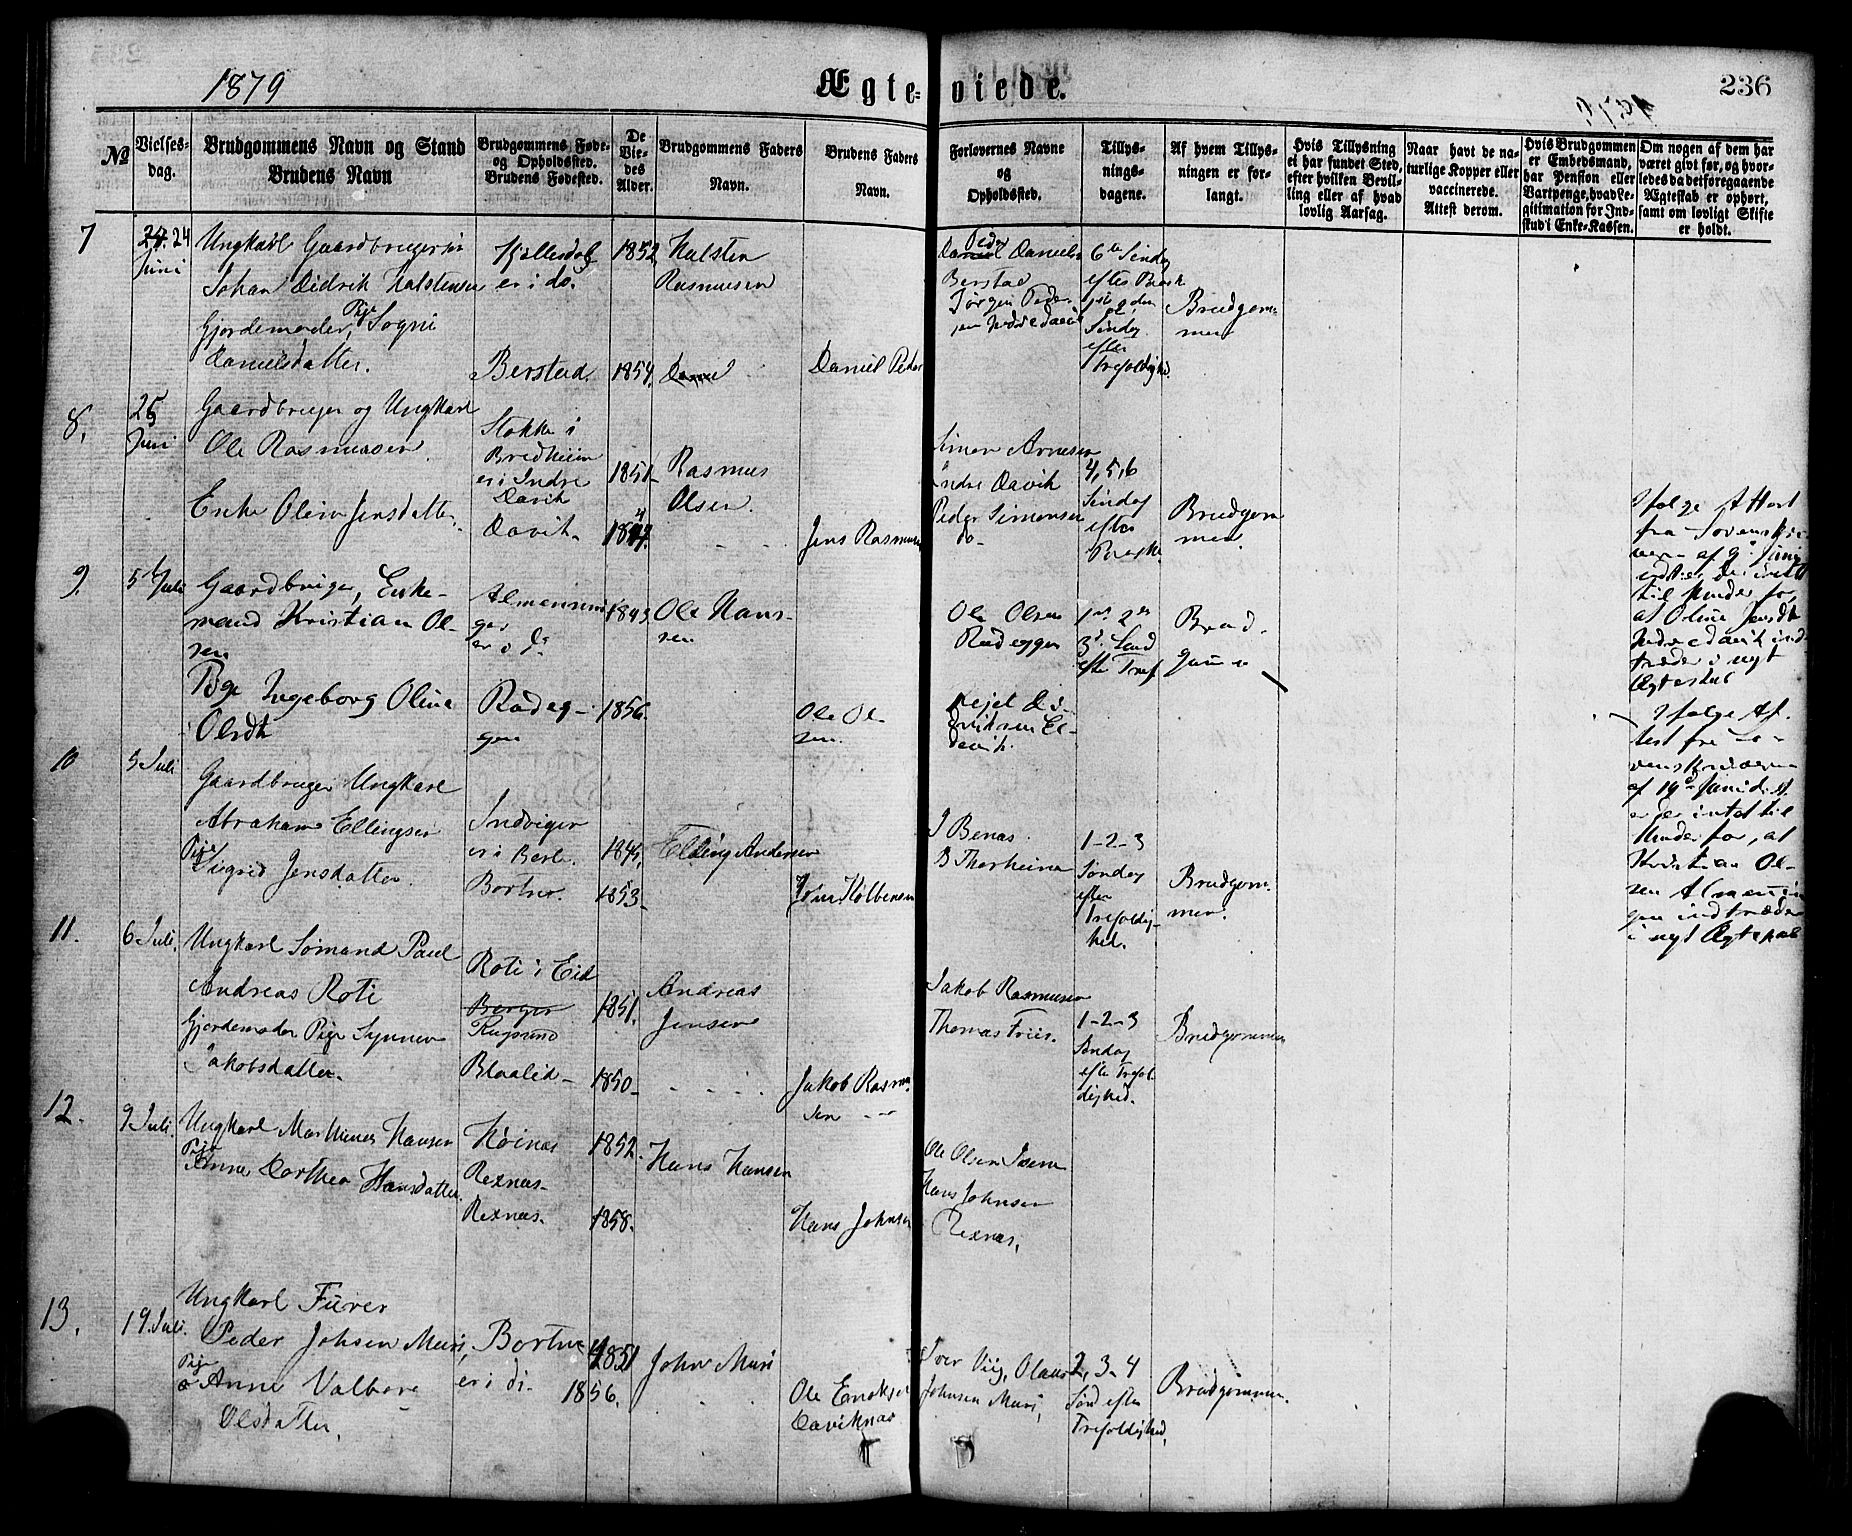 1879
Ægte-
viede.
236
№
Vielses-
dag.
Brudgommens Navn og Stand
Brudens Navn
Brudgommens Føde-
og Opholdssted.
Brudens Fødested.
De
Vie-
des
Alder.
Brudgommens Faders
Navn.
Brudens Faders
Navn.
Forlovernes Navne
og
Opholdssted.
Tillys-
nings-
dagene.
Af hvem Tillys-
ningen er for-
langt.
Hvis Tillysning
ei har fundet Sted,
efter hvilken Bevil-
ling eller af hvad
lovlig Aarsag.
Naar havt de na-
turlige Kopper eller
vaccinerede.
Attest derom.
Hvis Brudgommen
er Embedsmand,
har Pension eller
Vartpenge, hvad Le-
gitimation for Ind-
skud i Enke-Kassen.
Om nogen af dem har
været givt før, og hvor-
ledes da det foregaaende
Ægteskab er ophørt,
samt om lovligt Skifte
er holdt.
7
24
Juni
Ungkarl Gaardbruger
Johan Didrik Halstensen
Gjordemoder, Pige Sogni
Danielsdatter.
er i do.
Berstad.
1852
1854.
Halsten
Rasmusen
Daniel Peder
Peder Danielsen
Berstad
Jørgen Peder-
6te Søndag
efter Paask
Søndag
efter
Trefoldighd.
Brudgom-
men
8.
25
Juni
Gaardbruger og Ungkarl
Ole Rasmussen.
Enke Oline Jensdatter.
Stokke i
Bredheim
er i Indre
Davik
Davik.
1851
Rasmus
Olsen.
Jens Rasmusen
Simon Arnesen
Indre Davik
Peder Simonsen
do-
4, 5, 6
Søndag
efter
Paaske
Brudgom
men.
Ifølge Attest
fra Sorenskri-
veren af 9de Juni
er der intet
til Hinder for,
at Oline Jensdt
Indre Davik ind
træder i nyt
Ægteskab
9.
5 Juli
Gaardbruger, Enke-
mand Kristian Ol-
sen
Pige Ingeborg Oline
Olsdt
Almenning
gen
er i do
Rødeg-
gen
1843
1856.
Ole Hans-
sen
Ole Ol-
sen.
Ole Olsen
Rødeggen
1ste 2den
3d. Sønd
efter Tref.
Brud-
gommen
Ifølge At-
test fra So-
renskriveren
af 19de Juni d. A.
er der intet til
Hinder for, at
Kristian Ol-
sen Almennin
gen indtræder
i nyt Ægteskab
10
5 Juli
Gaardbruger Ungkarl
Abraham Ellingsen
Pige
Sigrid Jensdatter.
Indviger
er i Berle.
Bortne.
1845.
1853.
Elling Andersen
Jens Kølbensen
J Benas.
B Thorheim
1-2-3
Søndag
efter
Trefoldig-
hed.
Brudgom-
men.
11.
6 Juli.
Ungkarl Sømand Paul
Andreas Roti
Gjordemoder Pige Synnev
Jakobsdatter.
Roti i Eid
Rugsund
Blaalid-
1851.
1850-
Andreas
Jensen
Jakob Rasmu
sen
Jakob Rasmusen
Thomas Friis.
1-2-3
Søndag
efter Trefol
dighed.
Brudgommen
12.
9 Juli.
Ungkarl Mathias Hansen
Pige
Anne Dorthea Hansdatter.
Høinas
Rexnæs-
Rexnæs.
1852.
1858.
Hans Hansen
Hans Johnsen
Ole Olsen
Hans Johnsen
Rexnæs.
13.
19. Juli.
Ungkarl Furer
Peder Johsen Muri,
Pige
Anne Valborg
Olsdatter.
Bortne
er i do.
1851
1856.
John Muri
Ole Enoksen
Daviknæs
Iver Viig, Olaus
Johnsen Muri,
2, 3-4
Sønd efter
Trefoldighed.
Brudgommen.